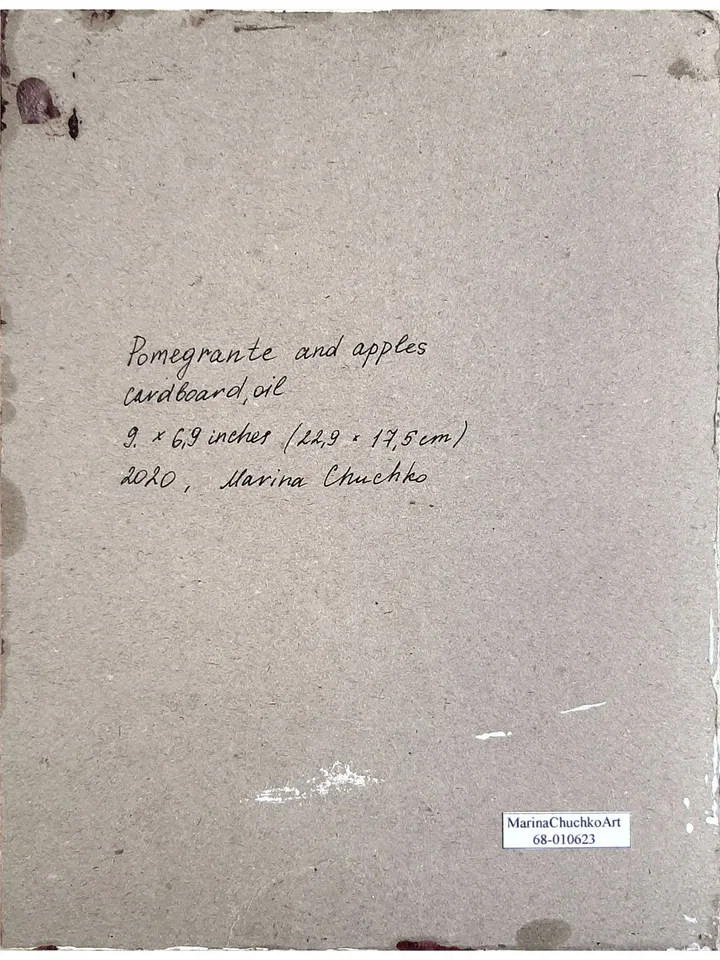 Pomegrante and apples
cardboard, oil
9. × 6,9 inches (22,9 × 17,5 cm)
2020, Marina Chuchko
MarinaChuchkoArt
68-010623